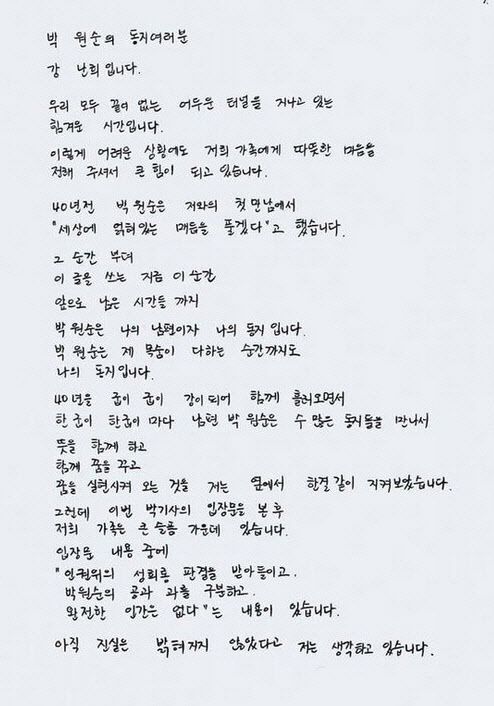 박 원순의 동지여러분
강 난희입니다.
우리 모두 끝이 없는 어두운 터널을 지나고 있는
힘겨운 시간입니다.
이렇게 어려운 상황에도 저희 가족에게 따뜻한 마음을
전해 주셔서 큰 힘이 되고 있습니다.
40년전 박 원순은 저와의 첫 만남에서
"세상에 얽혀있는 매듭을 풀겠다"고 했습니다.
그 순간 부터
이 글을 쓰는 지금 이 순간
앞으로 남은 시간들 까지
박 원순은 나의 남편이자 나의 동지 입니다.
박 원순은 제 목숨이 다하는 순간까지도
나의 동지입니다.
40년을 굽이 굽이 강이되어 함께 흘러오면서
한 굽이 한굽이 마다 남편 박 원순은 수 많은 동지들을 만나서
뜻을 함께 하고
함께 꿈을 꾸고
꿈을 실현시켜 오는 것을 저는 옆에서 한결 같이 지켜보았습니다.
그런데 이번 박기사의 입장문을 본 후
저희 가족은 큰 슬픔 가운데 있습니다.
입장문 내용 중에
"인권위의 성희롱 판결을 받아들이고,
박원순의 공과 과를 구분하고,
완전한 인간은 없다"는 내용이 있습니다.
아직 진실은 밝혀지지 않았다고 저는 생각하고 있습니다.